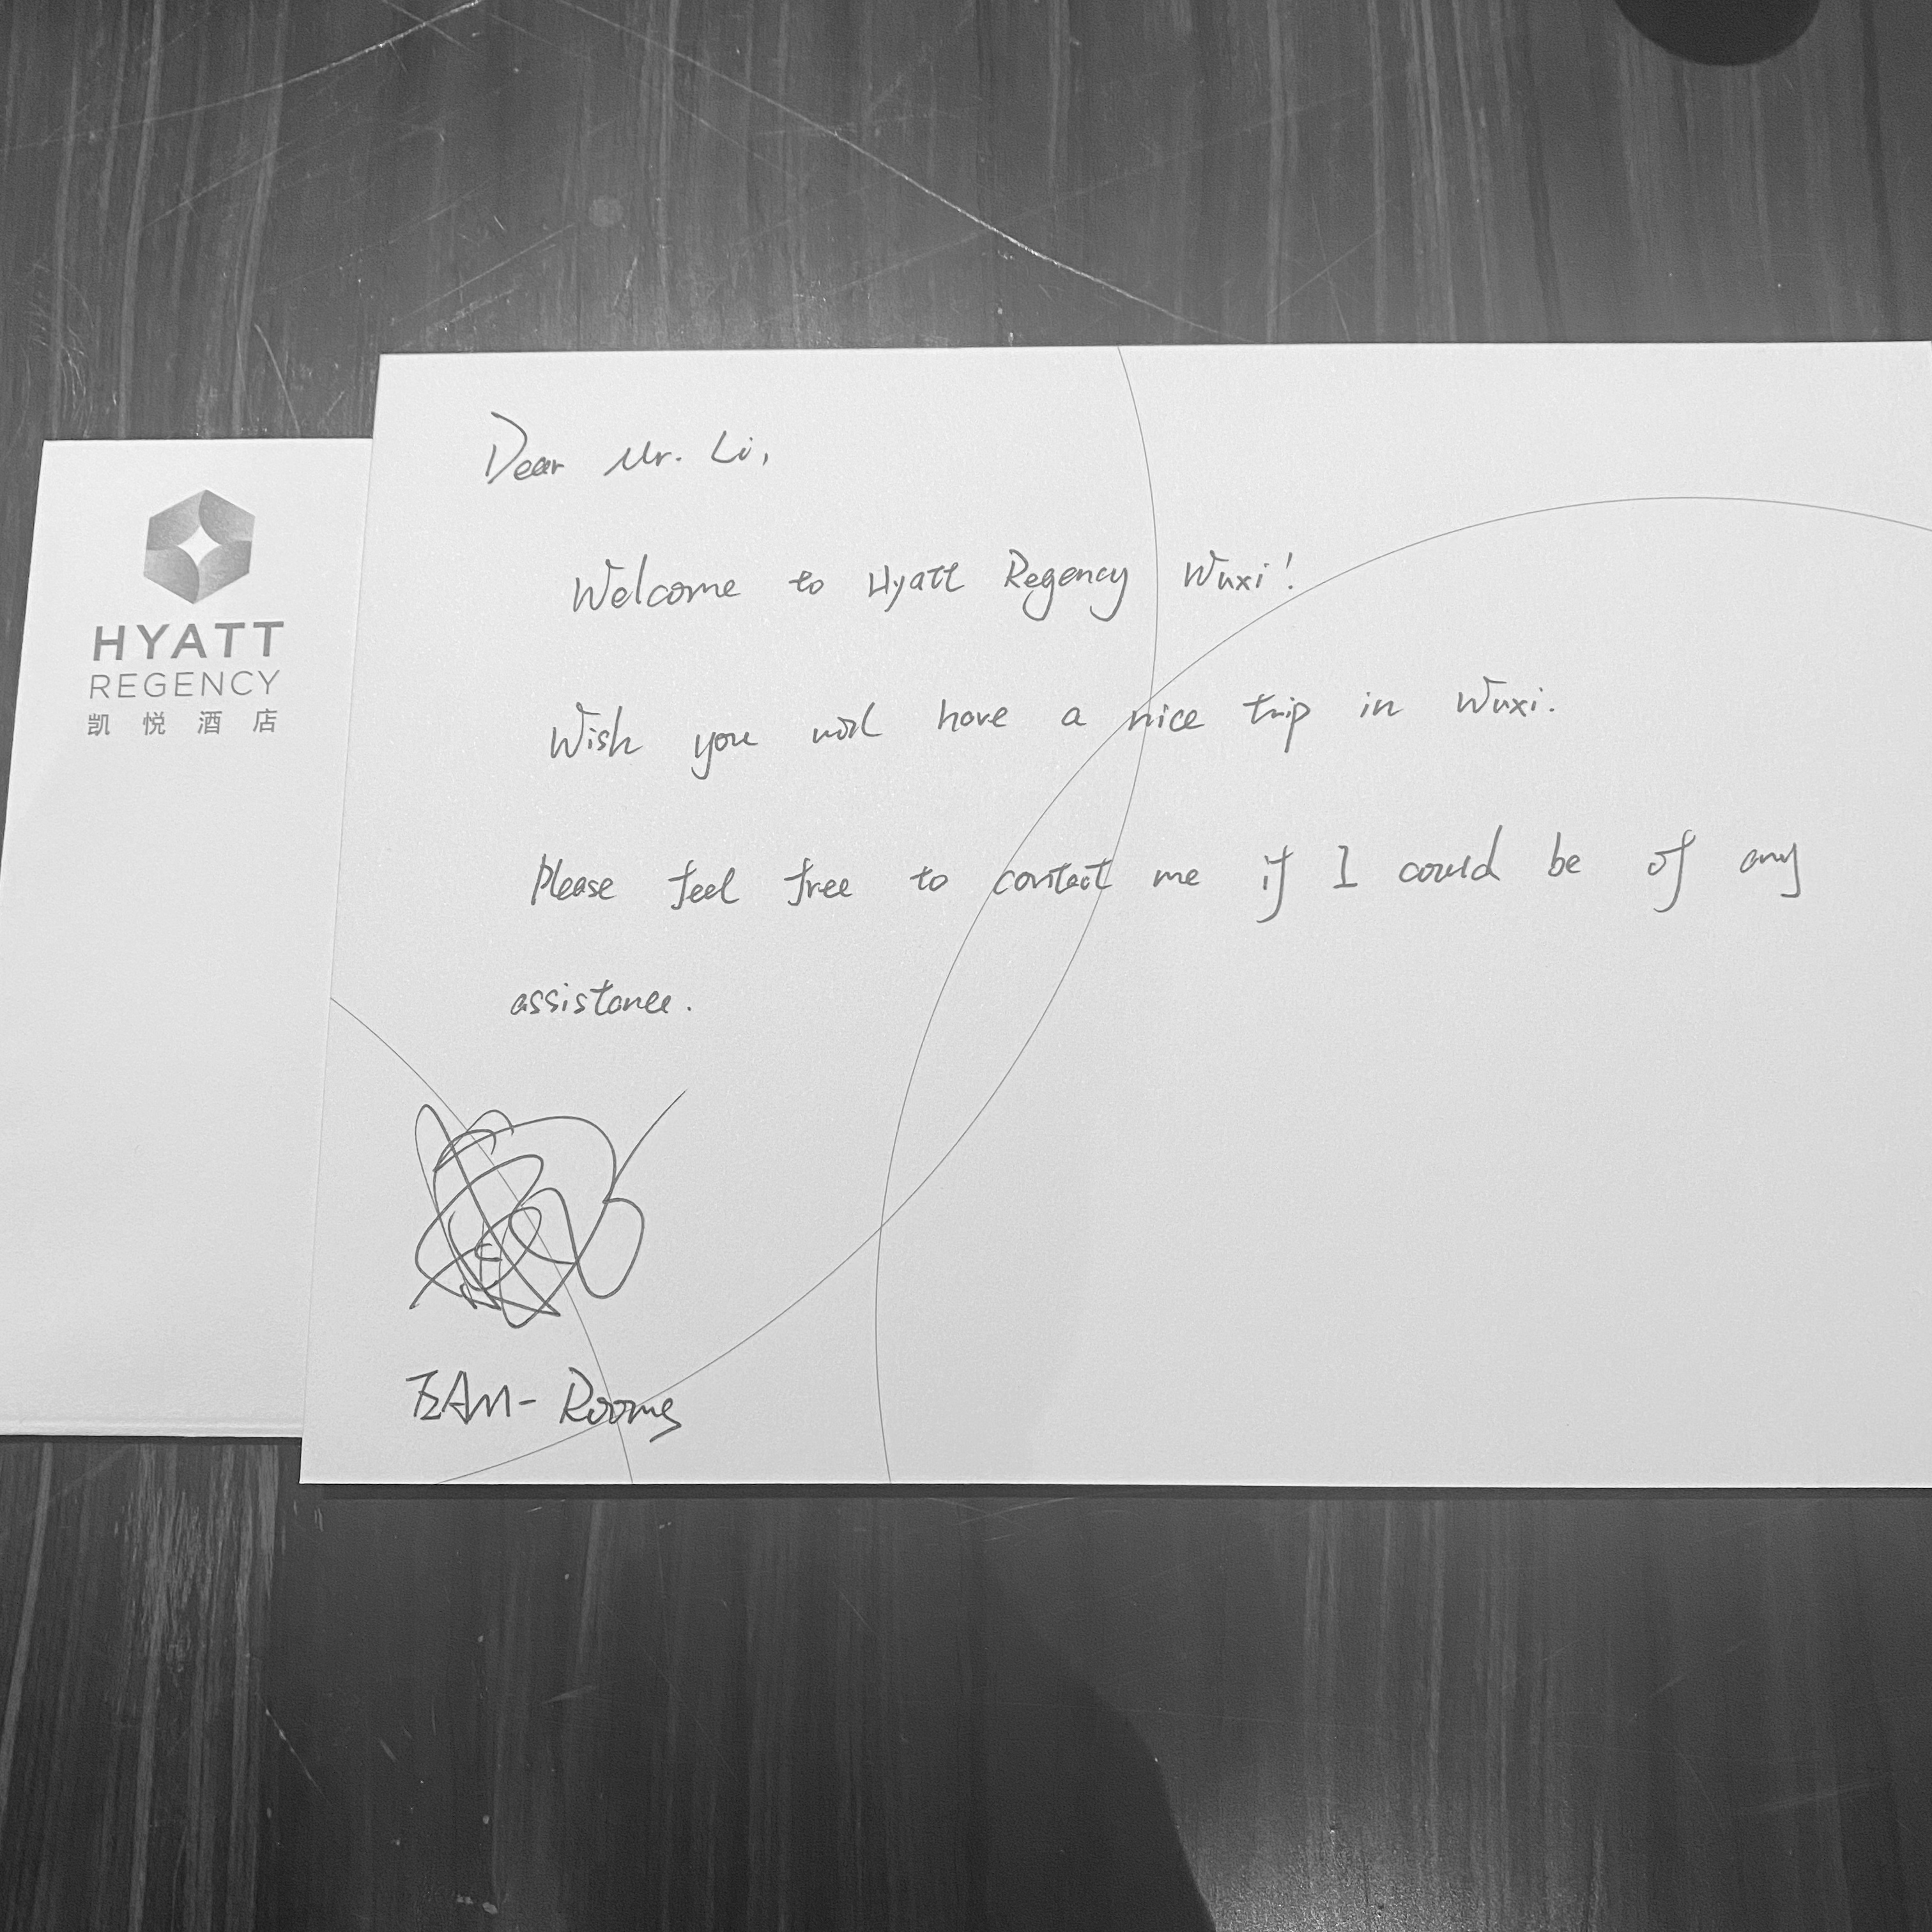 HYATT
REGENCY
凯悦酒店
Dear Mr. Li,
Welcome to Hyatt Regency Wuxi!
Wish you will have a nice trip in Wuxi.
Please feel free to contact me if I could be of any
assistance.
EAM- Rooms